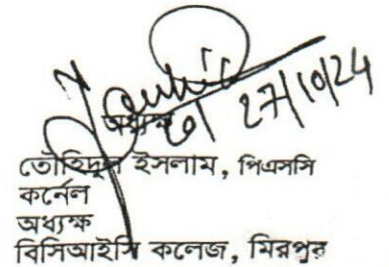 27/10/24
তৌহিদুল ইসলাম, পিএসসি
কর্নেল
অধ্যক্ষ
বিসিআইসি কলেজ, মিরপুর